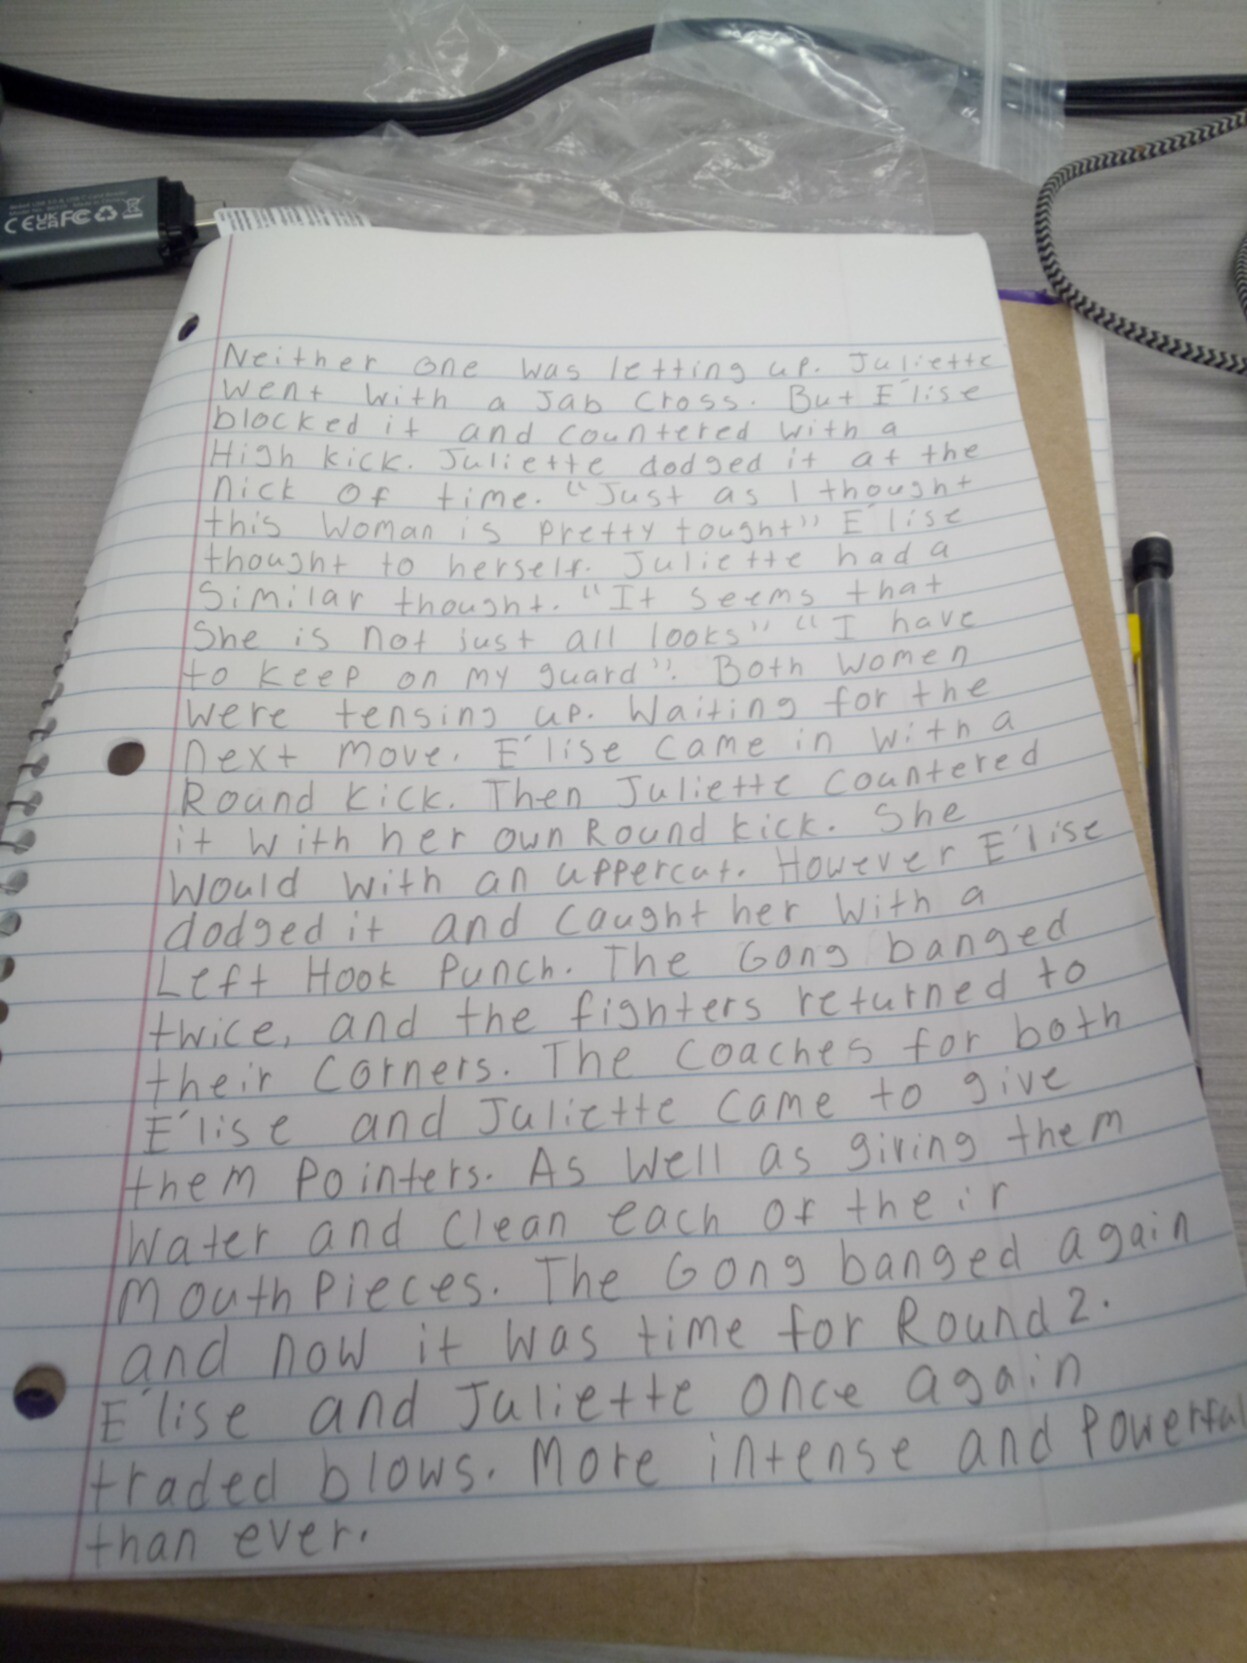 CE UK CA FC
Neither one was letting up. Juliette
went with a Jab Cross. But E'lise
blocked it and countered with a
High kick. Juliette dodged it at the
nick of time. "Just as I thought
this woman is pretty tought" E'lise
thought to herself. Juliette had a
Similar thought. "It seems that
She is not just all looks" "I have
to keep on my guard". Both women
were tensing up. Waiting for the
next move. E'lise came in with a
Round kick. Then Juliette countered
it with her own Round kick. She
Would with an uppercut. However E'lise
dodged it and caught her with a
Left Hook Punch. The Gong banged
twice, and the fighters returned to
their Corners. The Coaches for both
E'lise and Juliette came to give
them Pointers. As Well as giving them
Water and Clean each of their
Mouth Pieces. The Gong banged again
and now it was time for Round 2.
E'lise and Juliette once again
traded blows. More intense and Powerful
than ever.